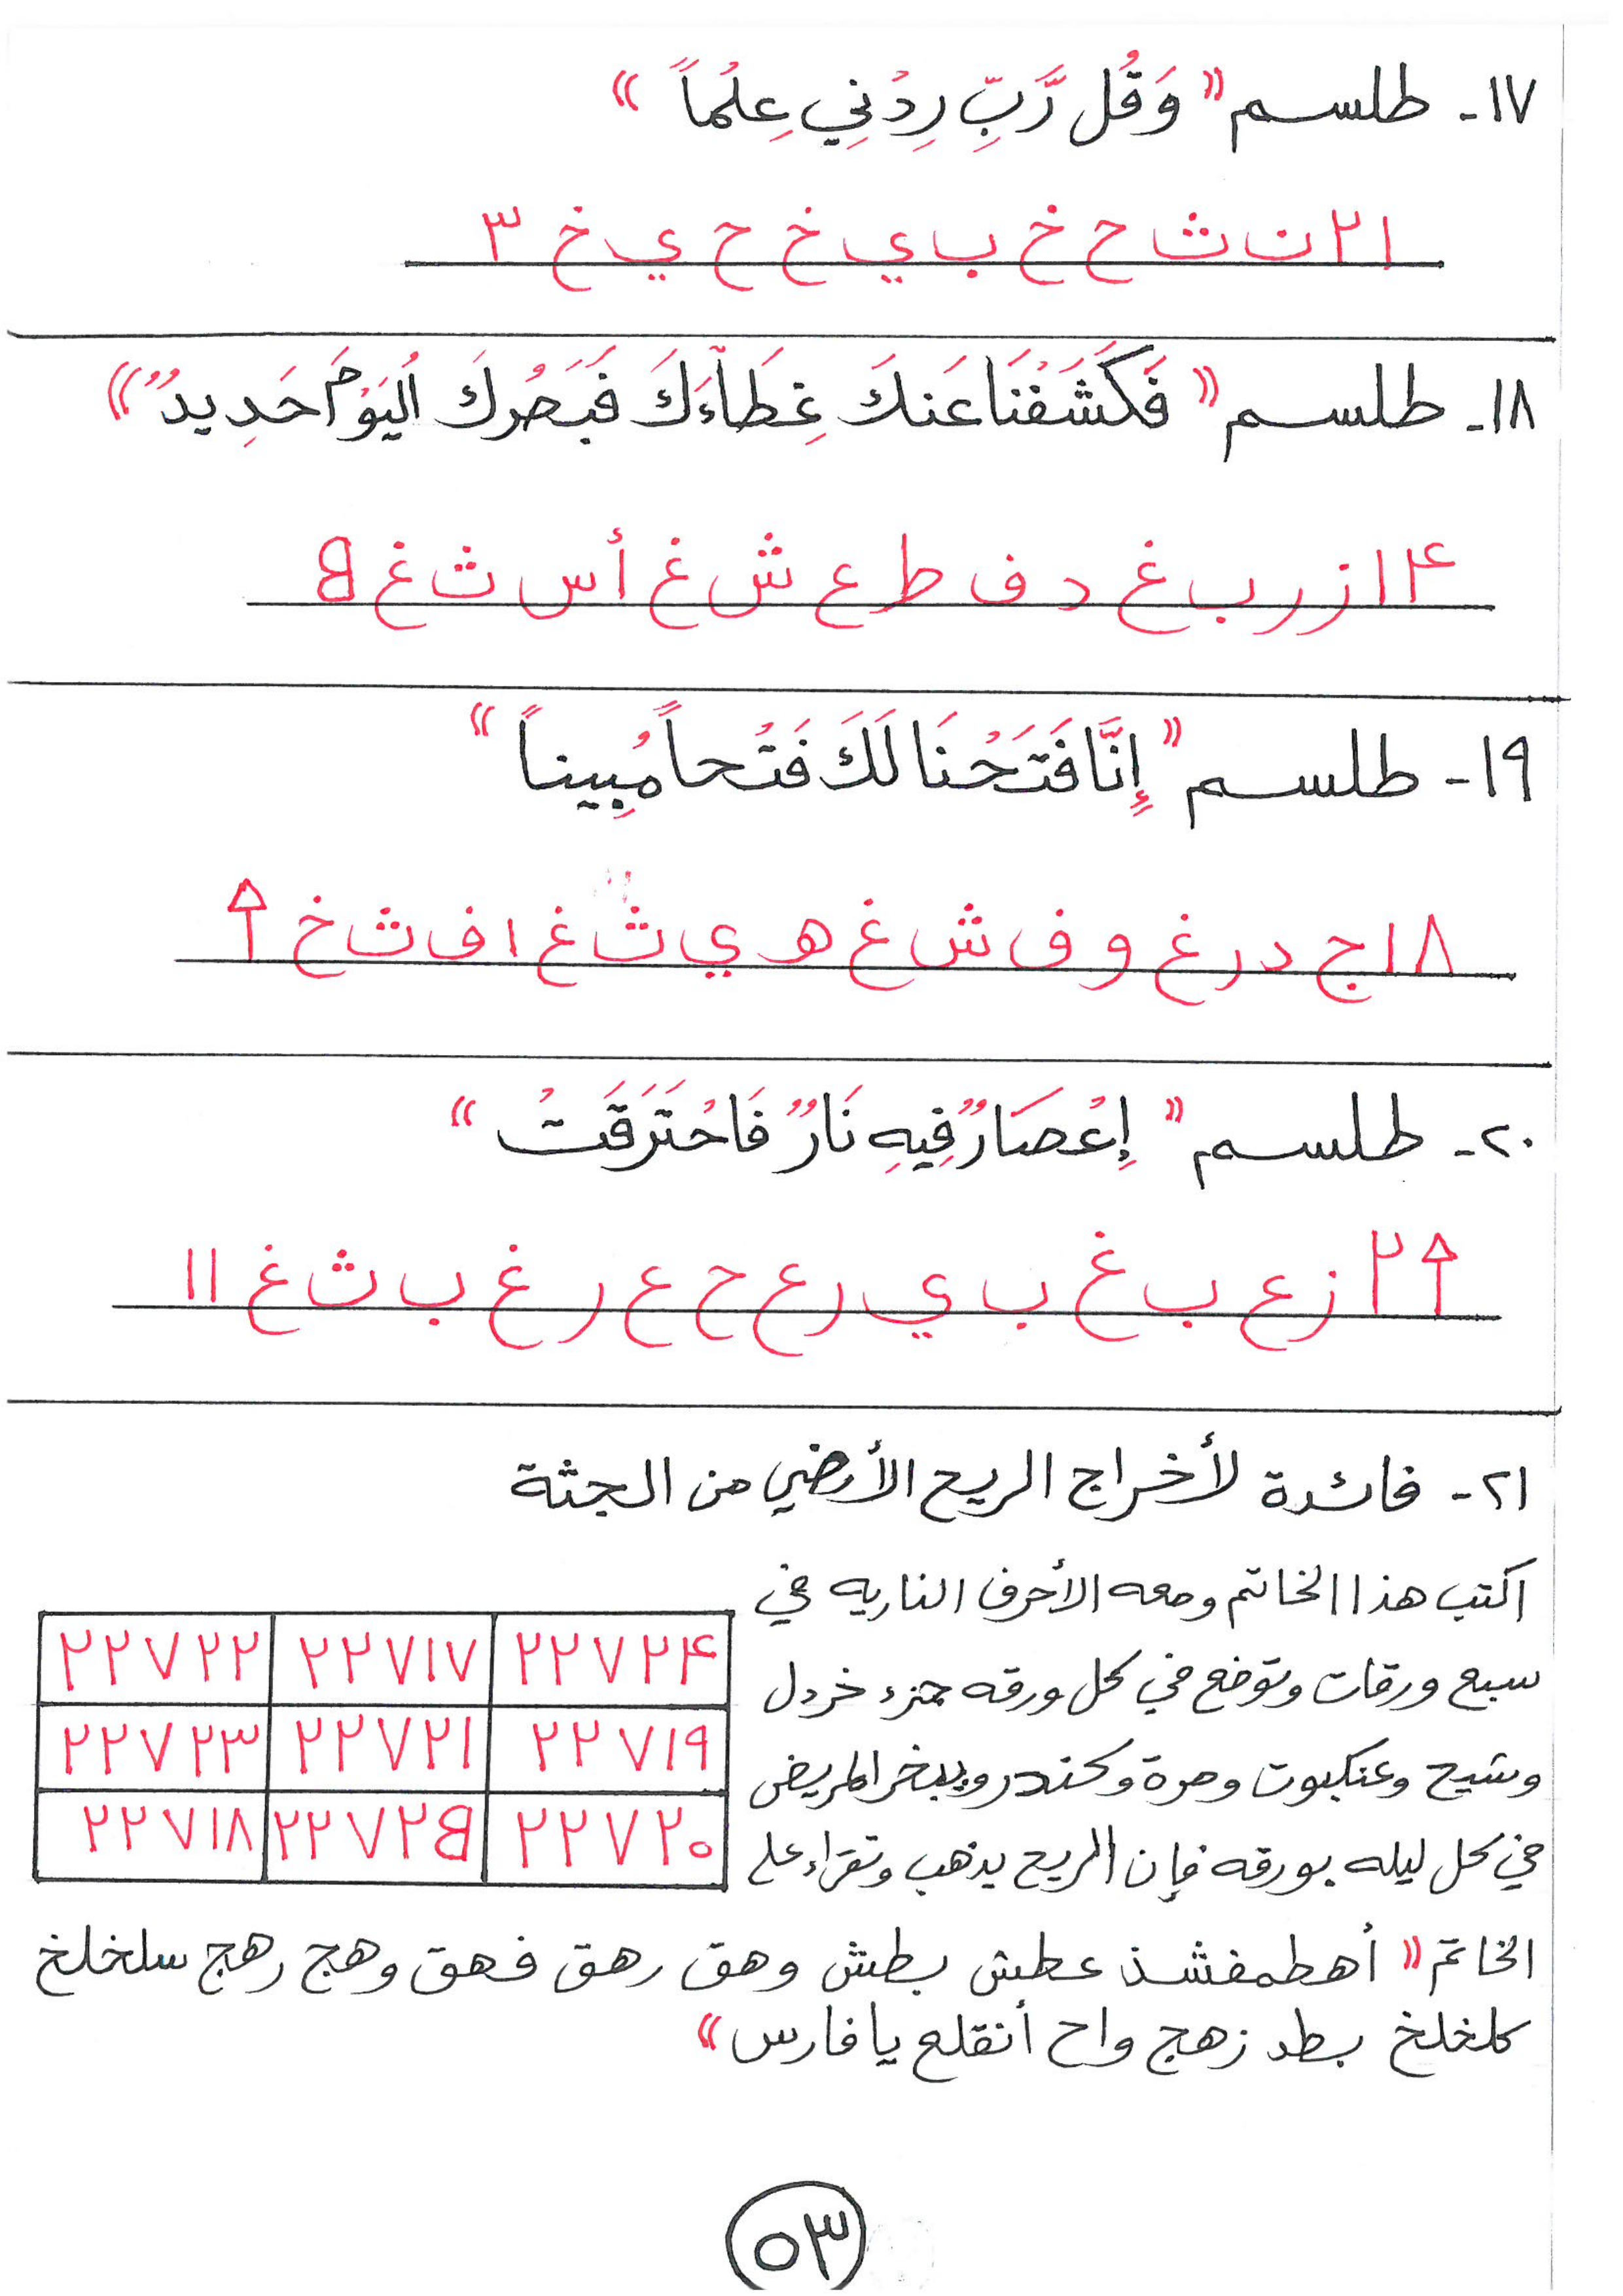 ١٧- طلسم " وَقُل رَّبِّ زِدْنِي عِلْماً "
٢١ ن ث ح خ ب ي خ ح ي خ ٣
١٨- طلسم " فَكَشَفْنَا عَنكَ غِطَآءَكَ فَبَصَرُكَ الْيَوْمَ حَدِيدٌ "
١۴ ز ر ب غ د ف ط ع ش غ أ س ث غ
١٩- طلسم " إِنَّا فَتَحْنَا لَكَ فَتْحاً مُبِيناً "
١٨ ج د ر غ و ف ش غ ه ي ث غ ا ف ث خ
٢٠- طلسم " إِعْصَارٌ فِيهِ نَارٌ فَاحْتَرَقَتْ "
٢ ز ع ب غ ب ي ر ع ح ع ر غ ب ث غ ١١
٢١- فائدة لأخراج الريح الأرضي من الجثة
اكتب هذا الخاتم ومعه الأحرف الناريه في
سبع ورقات وتوضع في كل ورقه جزء خردل
وشيح وعنكبوت ومرة وكندر ويبخر المريض
في كل ليله بورقه فإن الريح يذهب وتقراء على
٢٢٧٢۴ ٢٢٧١٧ ٢٢٧٢٢
٢٢٧١٩ ٢٢٧٢١ ٢٢٧٢٣
٢٢٧٢٠ ٢٢٧٢٥ ٢٢٧١٨
الخاتم " أهطمفشذ عطش بطش وهق رهق فهق وهج رهج سلخلخ
كلخلخ بطد زهج واح أنقلع يا فارس "
٥٣